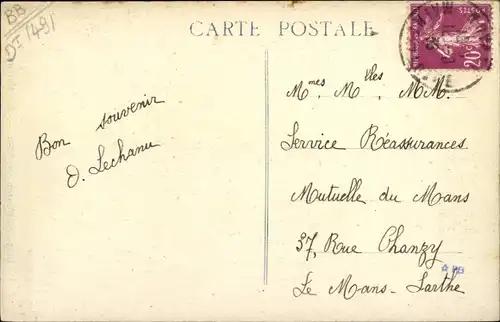 BB
DT 1481
CARTE POSTALE
POSTES
20c
Bon souvenir
O. Lechanu
Mmes Mlles MM.
Service Réassurances
Mutuelle du Mans
37, Rue Chanzy
Le Mans - Sarthe